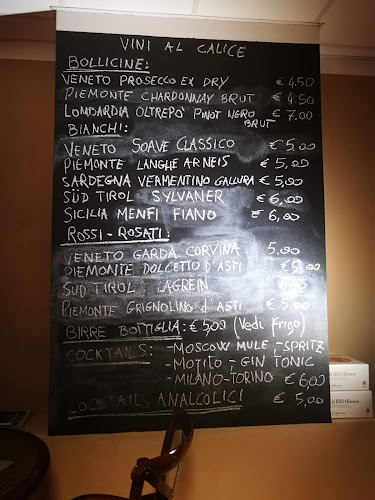 VINI AL CALICE
BOLLICINE:
VENETO PROSECCO EX DRY € 4,50
PIEMONTE CHARDONNAY BRUT € 4,50
LOMBARDIA OLTREPO' PINOT NERO BRUT € 7,00
BIANCHI:
VENETO SOAVE CLASSICO € 5,00
PIEMONTE LANGHE ARNEIS € 5,00
SARDEGNA VERMENTINO GALLURA € 5,00
SÜD TIROL SYLVANER € 6,00
SICILIA MENFI FIANO € 6,00
ROSSI-ROSATI:
VENETO GARDA CORVINA 5,00
PIEMONTE DOLCETTO D'ASTI €5,00
SUD TIROL LAGREIN 6,00
PIEMONTE GRIGNOLINO d'ASTI € 5,00
BIRRE BOTTIGLIA: € 5,00 (Vedi Frigo)
COCKTAILS: -MOSCOW MULE -SPRITZ
-MOJITO - GIN TONIC
-MILANO-TORINO € 6,00
COCKTAILS ANALCOLICI € 5,00